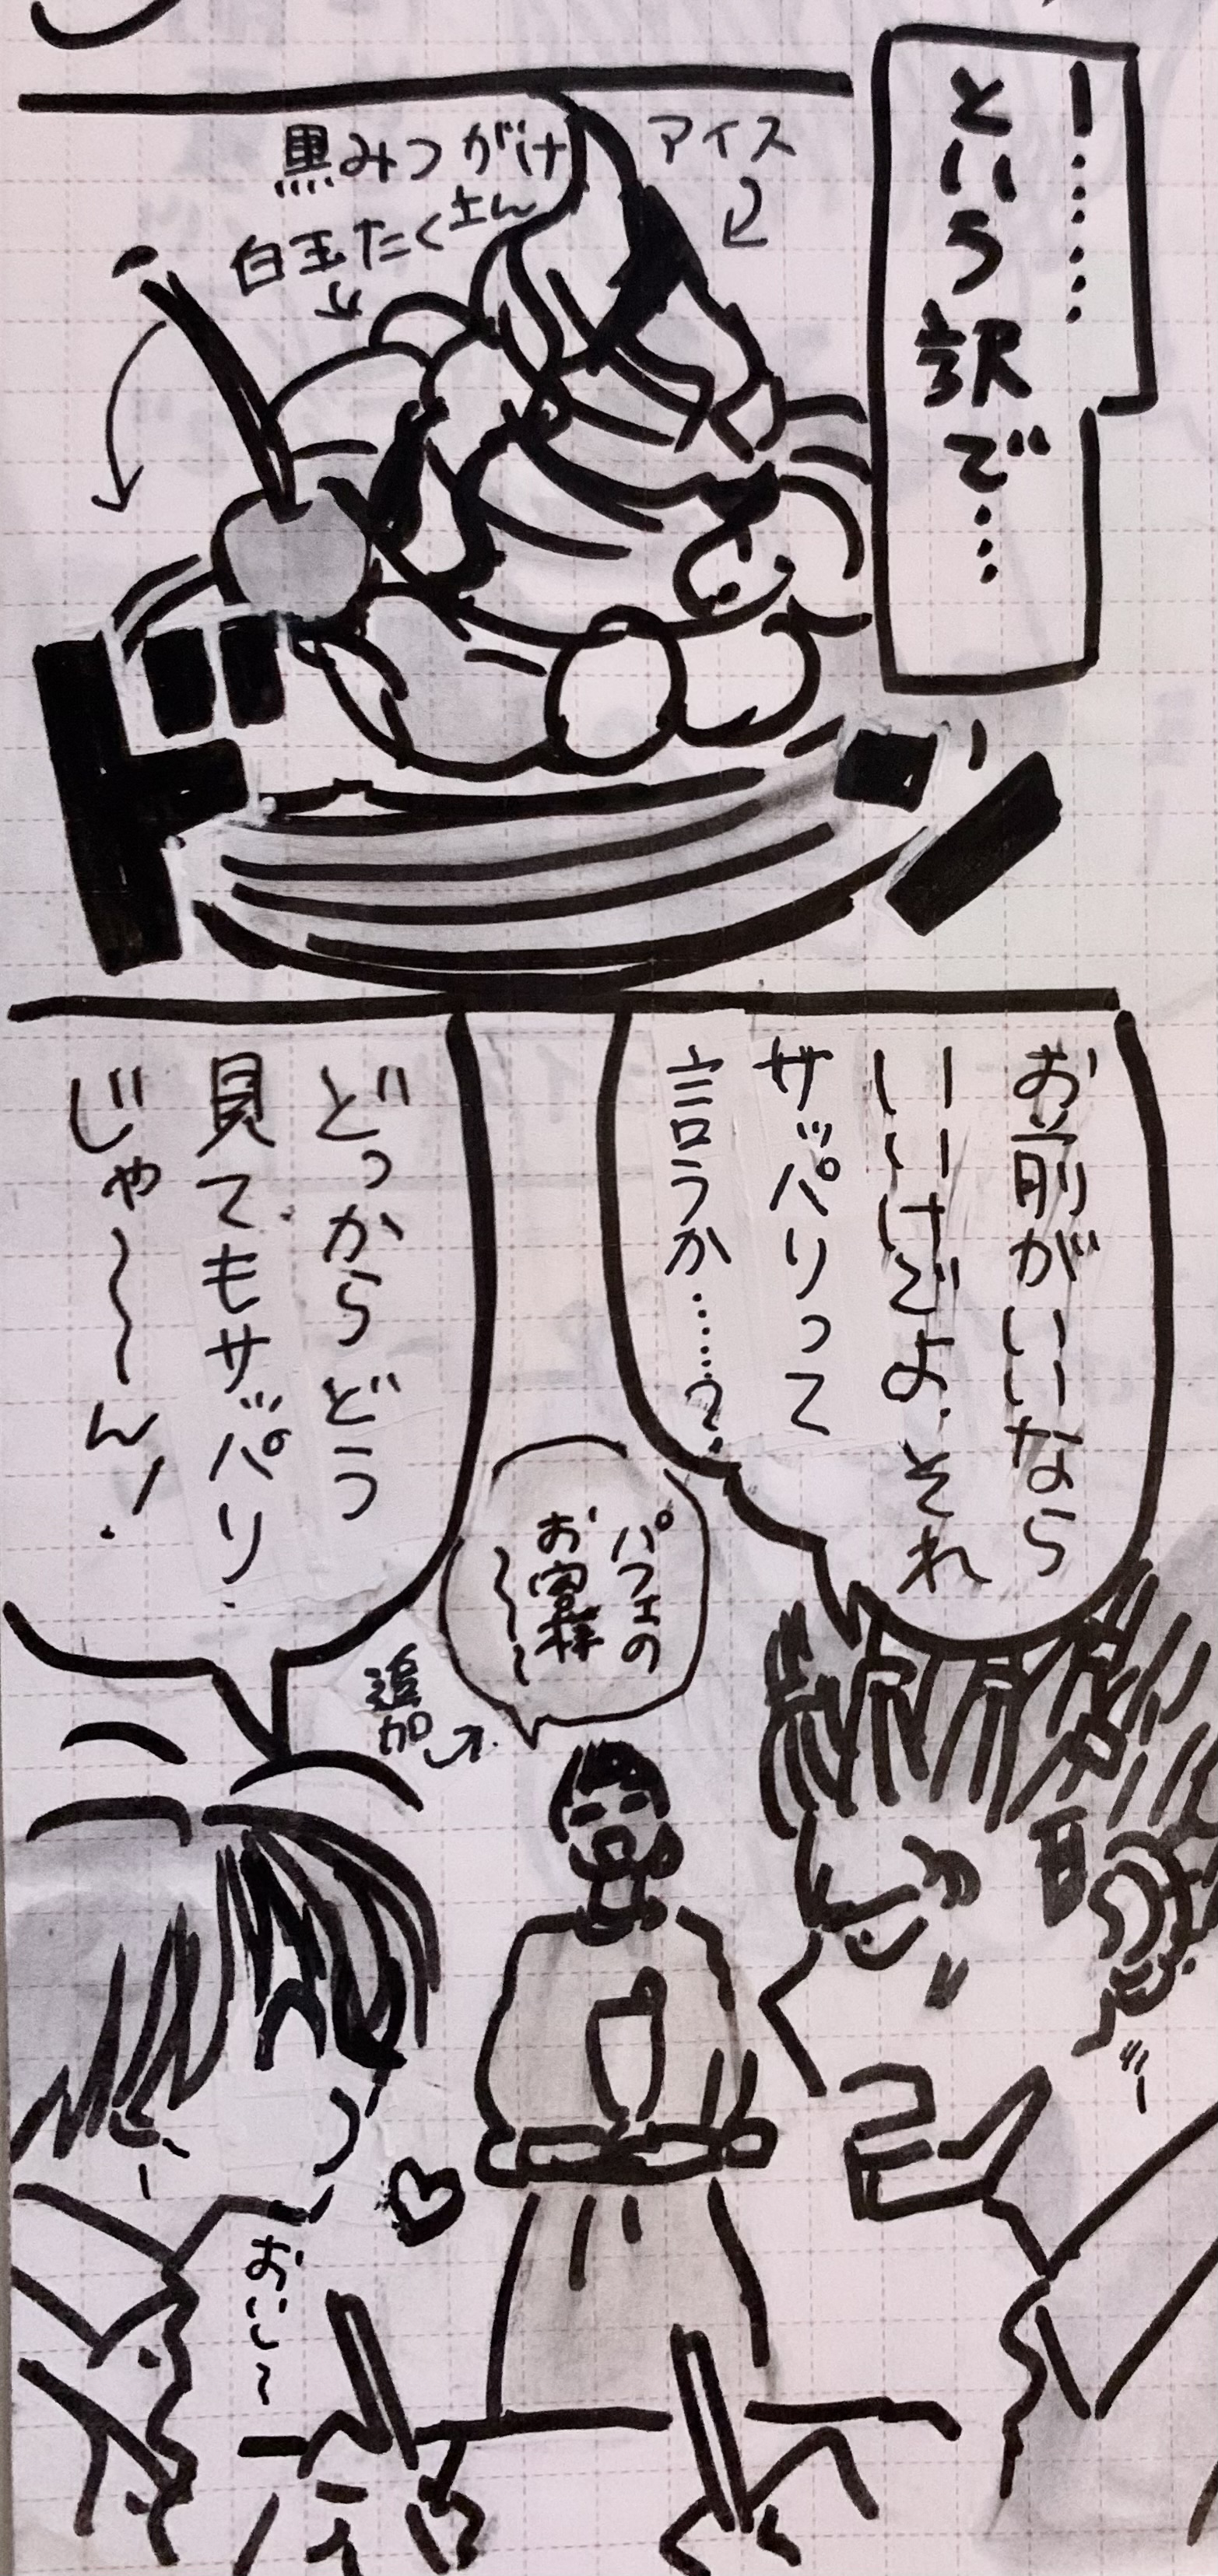 ー……
という訳で…
アイス
黒みつがけ
白玉たくさん
ドドン
お前がいいなら
いいけどよ、それ
サッパリって
言うか……?
パフェの
お客様
〜〜
追加
どっからどう
見てもサッパリ
じゃ〜〜ん!
おい〜